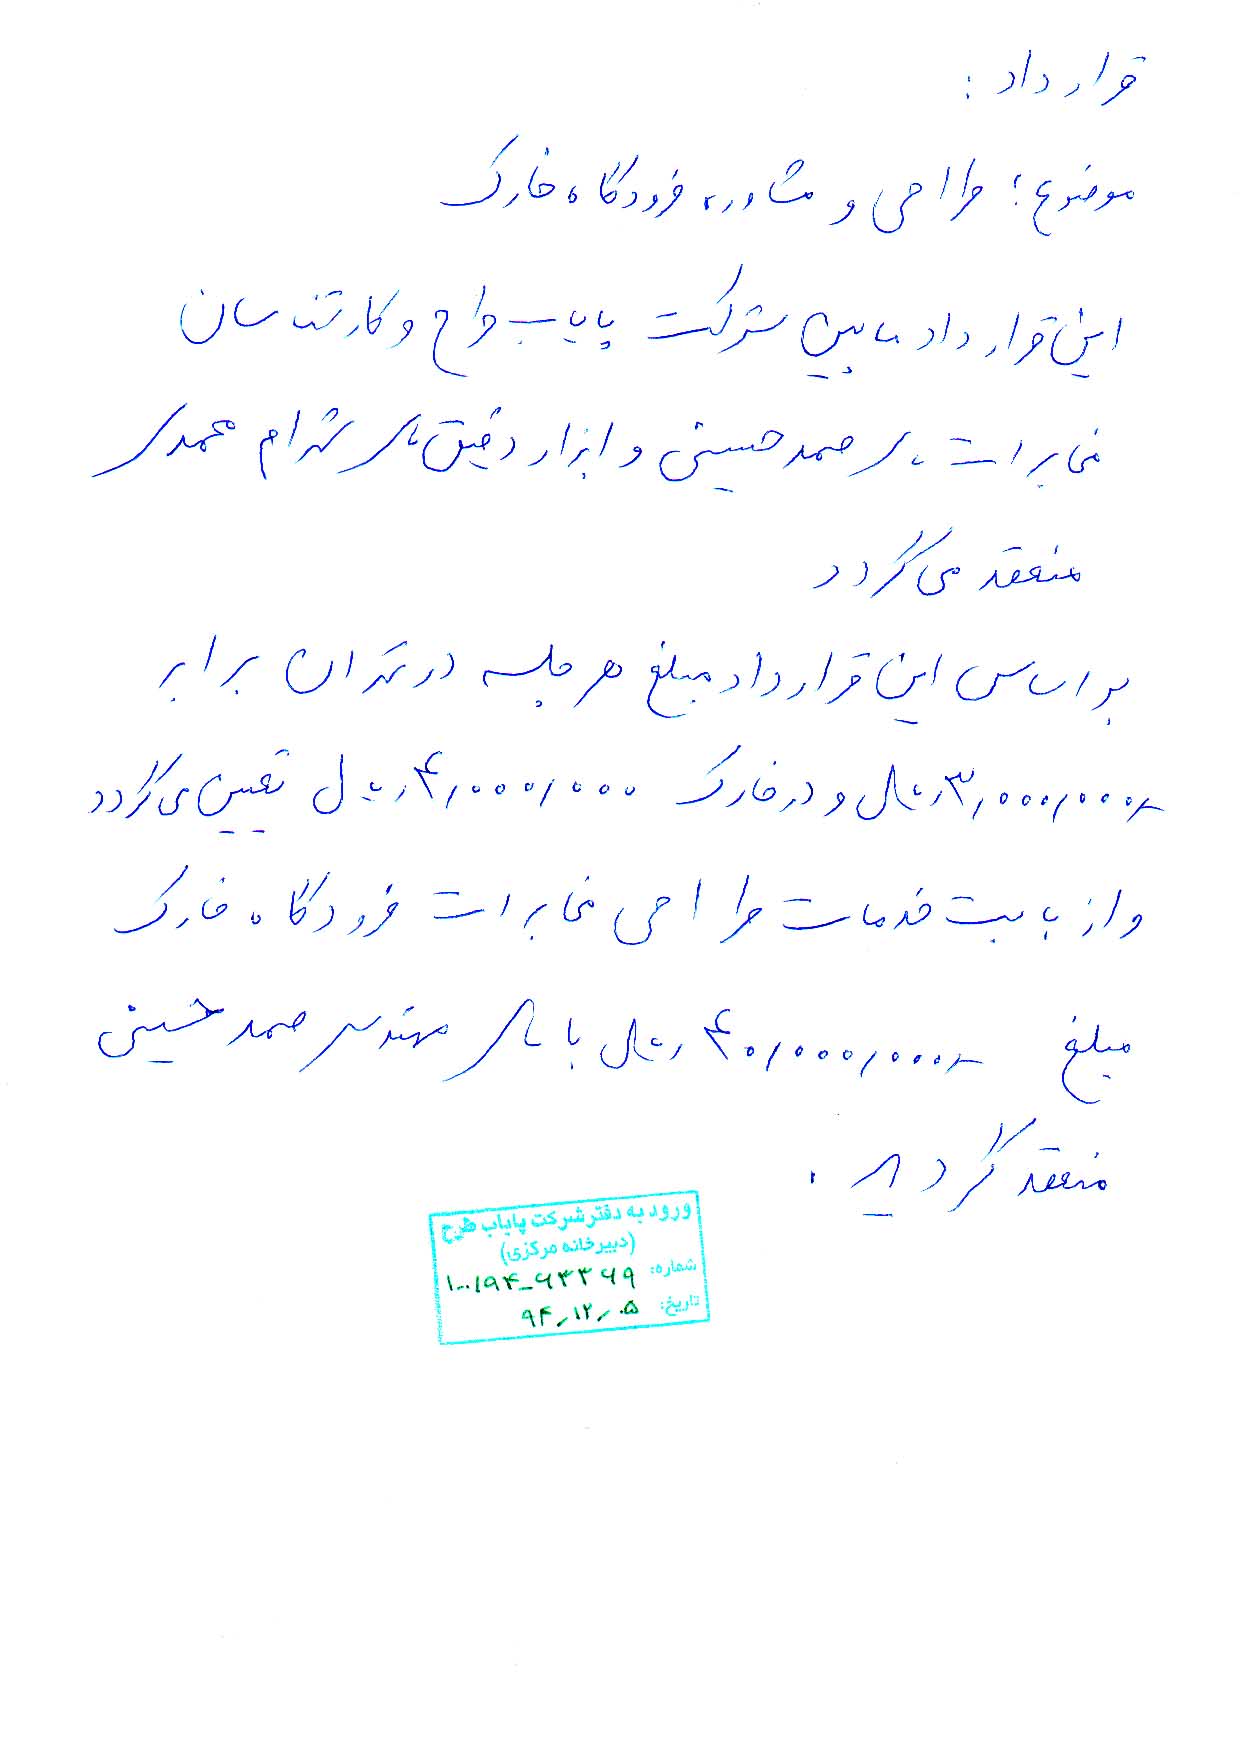 قرارداد :
موضوع : طراحی و مشاوره فرودگاه خارک
این قرارداد مابین شرکت پایاب طرح و کارشناسان
مخابرات ، صمد حسینی و ابزار دقیق شهرام محمدی
منعقد می گردد
بر اساس این قرارداد مبلغ هر جلسه در تهران برابر
۳,۰۰۰,۰۰۰ ریال و در خارک ۴,۰۰۰,۰۰۰ ریال تعیین می گردد
و از بابت خدمات طراحی مخابرات فرودگاه خارک
مبلغ ۴۰,۰۰۰,۰۰۰ ریال با مهندس صمد حسینی
منعقد گردید .
ورود به دفتر شرکت پایاب طرح
(دبیرخانه مرکزی)
شماره: ۱۰۰۱۹۴-۶۳۳۶۹
تاریخ: ۹۴/۱۲/۰۵